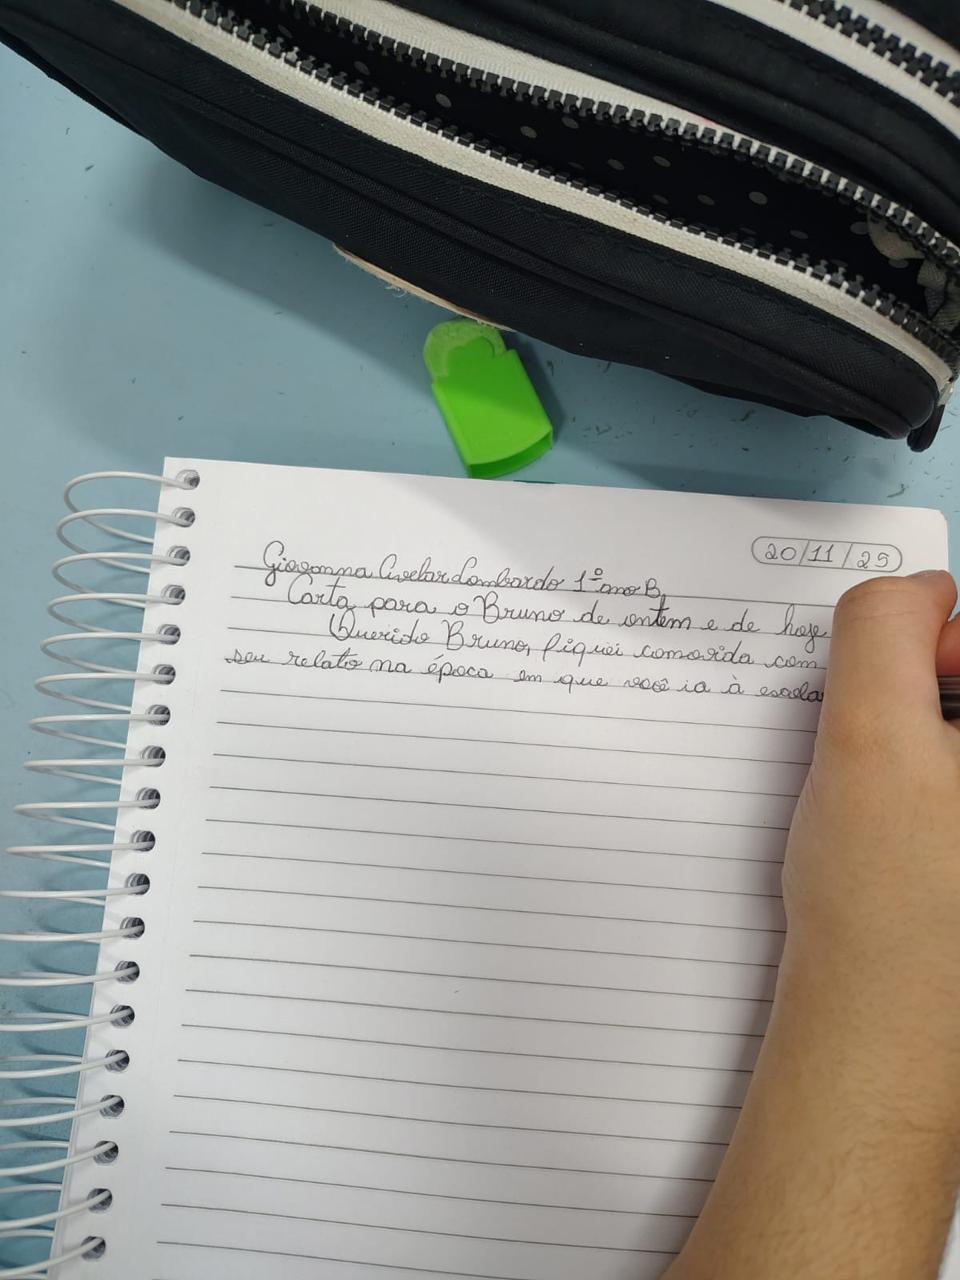 20/11/25
Giovanna Avelar Lombardo 1º ano B,
Carta para o Bruno de ontem e de hoje
Querido Bruno, fiquei comovida com
seu relato na época em que você ia à escola